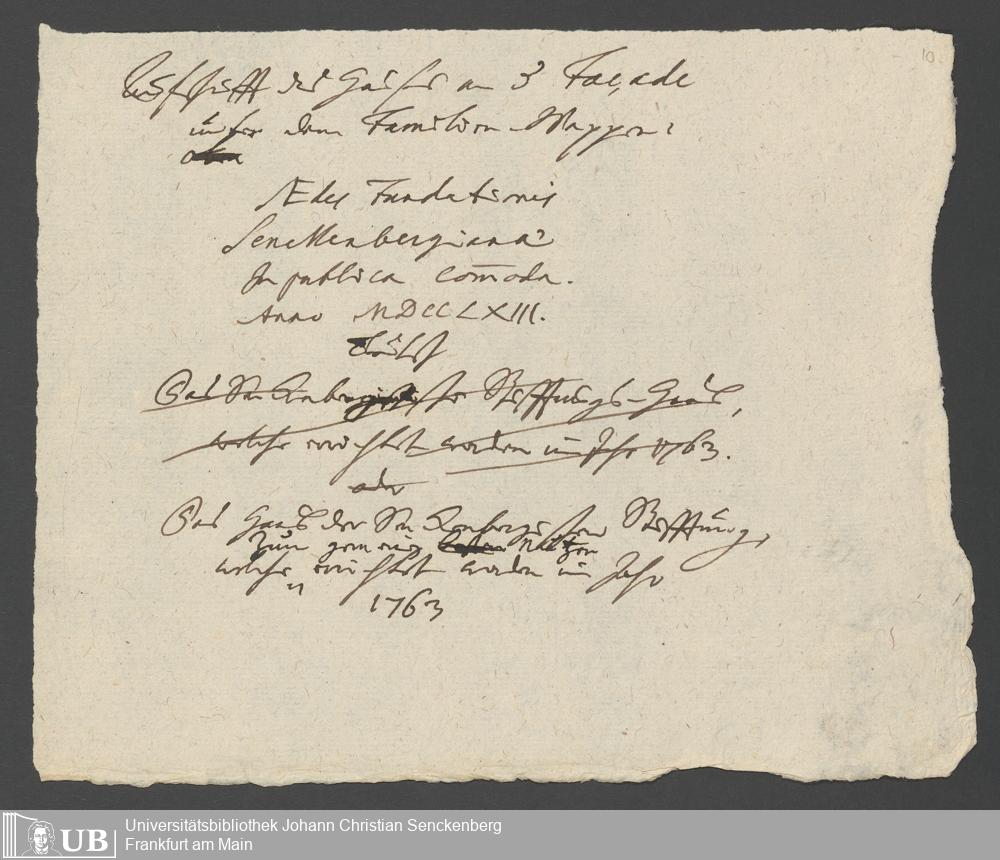 10.
Aufschrifft des Hauses an 3 Façade
unter dem Familien-Wappen:
oben
Ædes Fundationis
Senckenbergianæ
In publica com̄oda.
Anno MDCCLXIII.
Das Senckenbergische Stifftungs-Haus,
welches errichtet worden im Jahr 1763.
oder
Das Haus der Senckenbergischen Stifftung,
Zum gemeinen Nutzen
welche errichtet worden im Jahr
1763
UB
Universitätsbibliothek Johann Christian Senckenberg
Frankfurt am Main